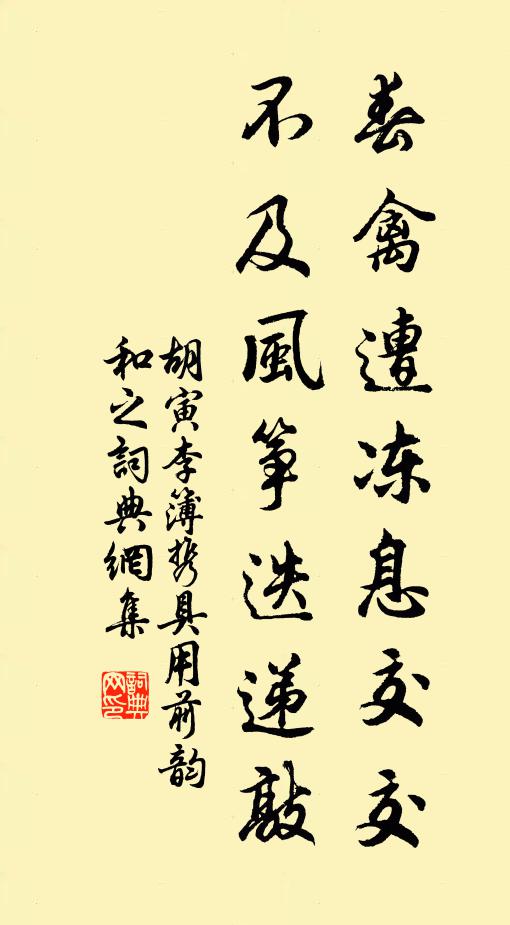 春禽遭冻息交交
不及風筝迭递敲
胡寅李簿携具用前韵
和之詞典網集
詞典網印